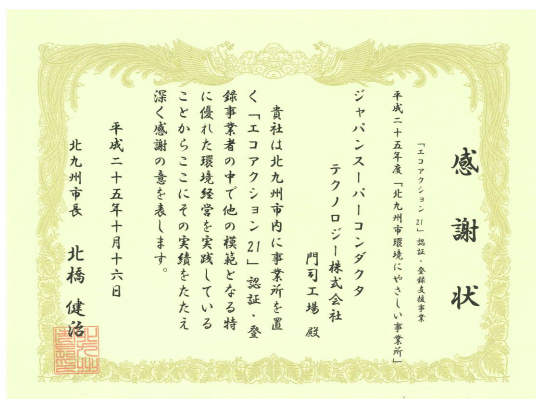 感謝状
「エコアクション21」認証・登録支援事業
平成二十五年度「北九州市環境にやさしい事業所」
ジャパンスーパーコンダクタ
テクノロジー株式会社
門司工場 殿
貴社は北九州市内に事業所を置
く「エコアクション21」認証・登
録事業者の中で他の模範となる特
に優れた環境経営を実践している
ことからここにその実績をたたえ
深く感謝の意を表します。
平成二十五年十月十六日
北九州市長 北橋健治